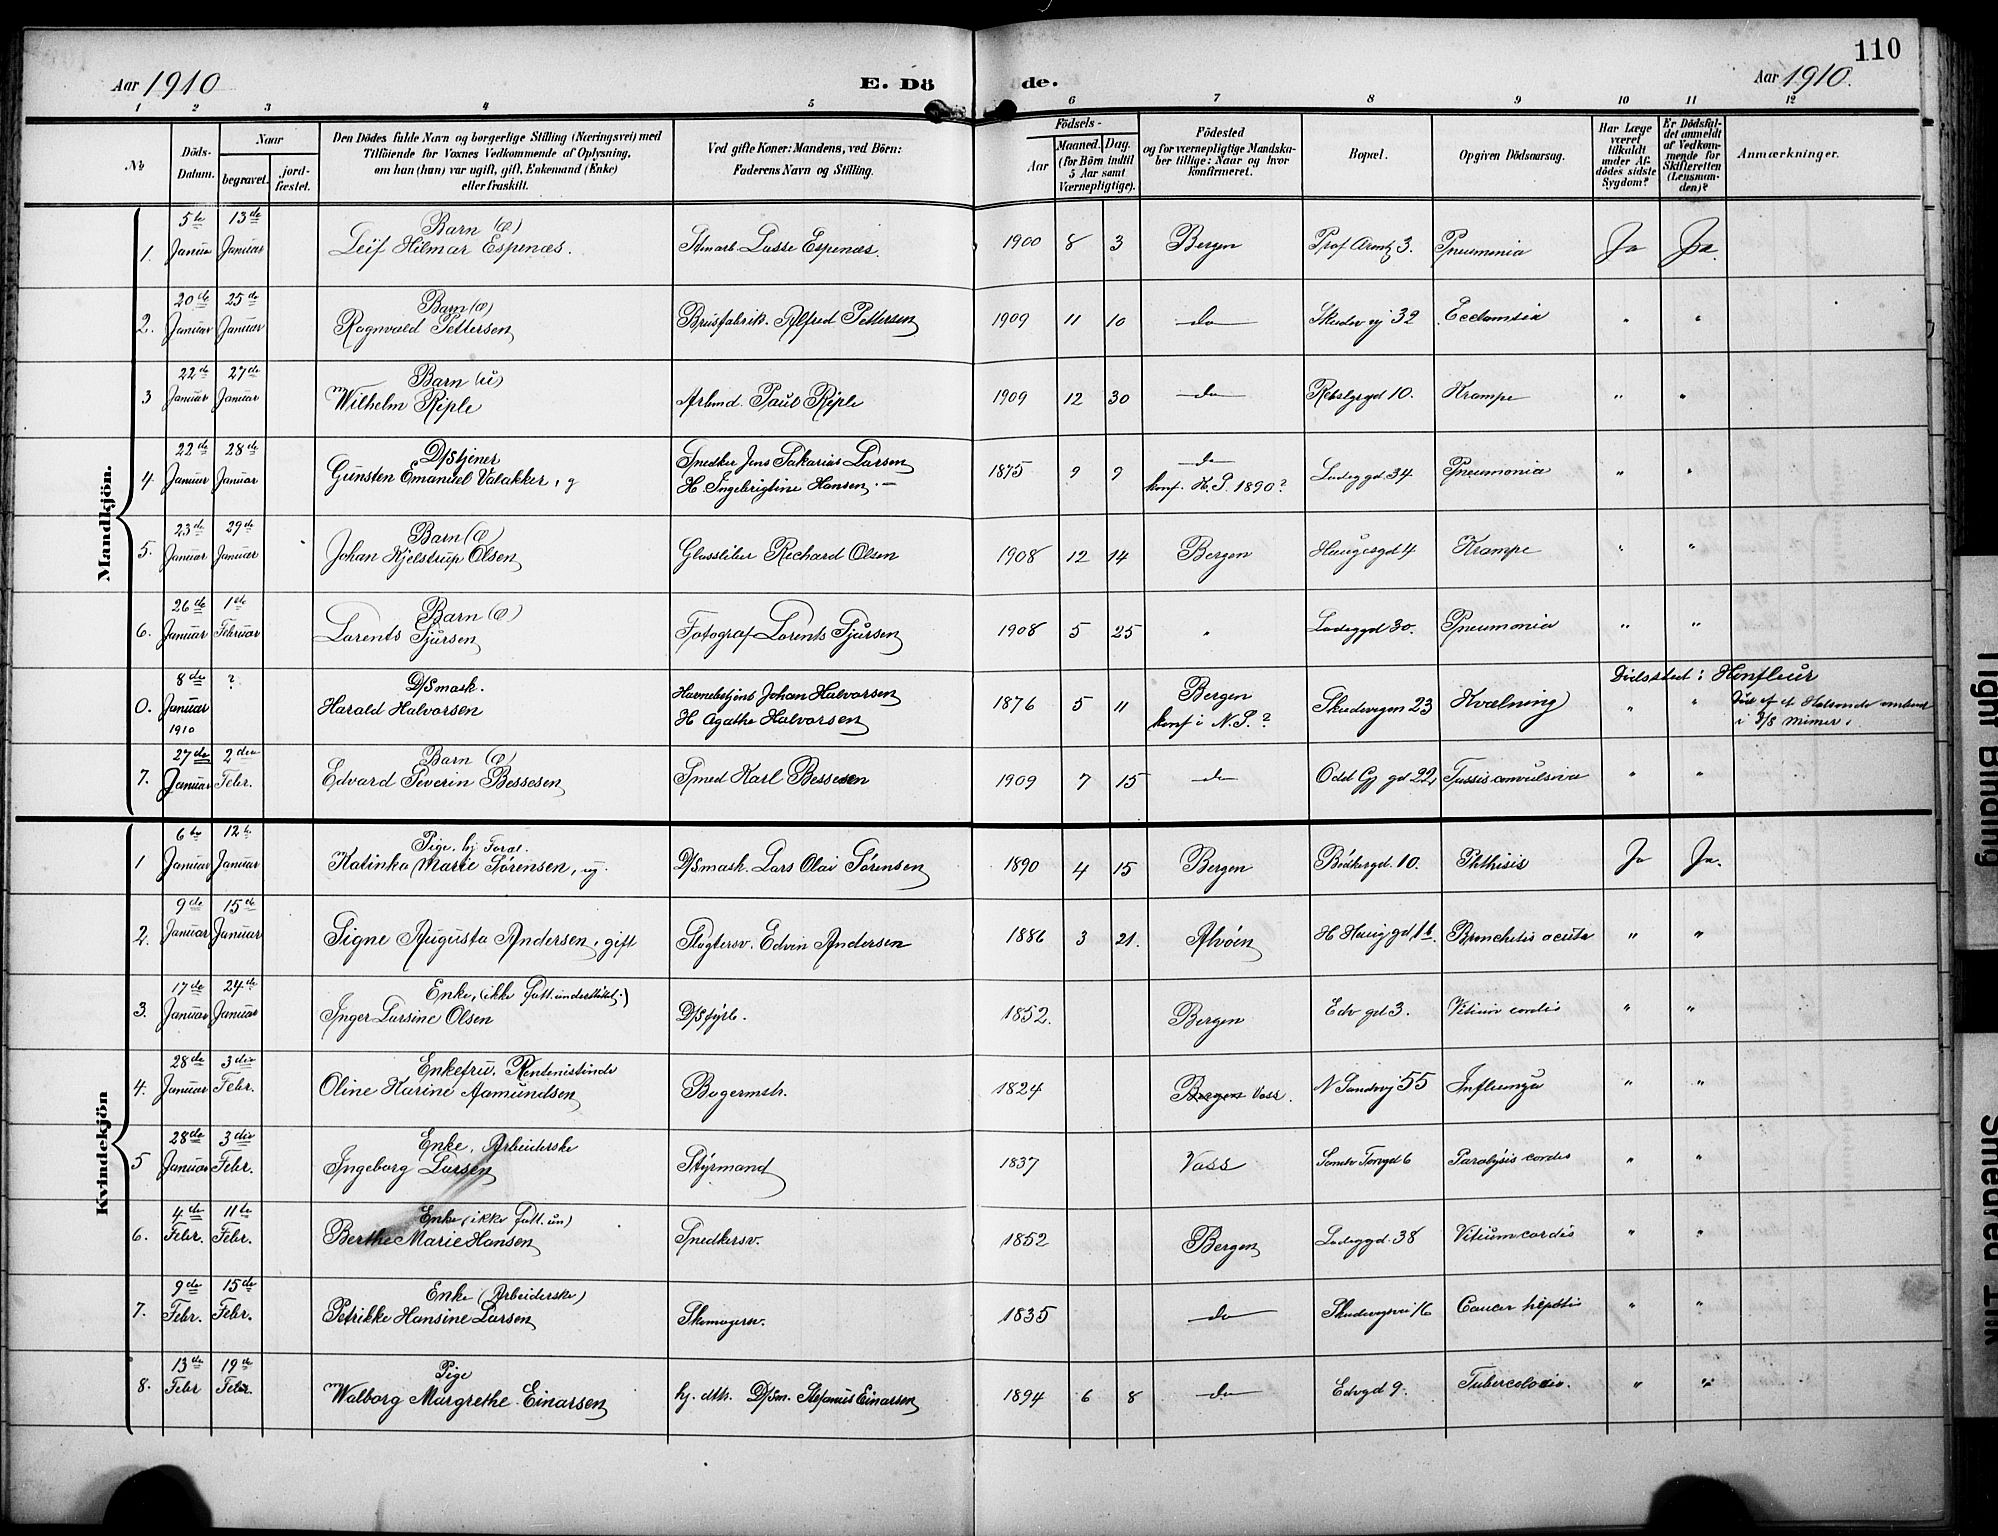 110
Aar 1910 E. Dö de. Aar 1910.
1 2 3 4 5 6 7 8 9 10 11 12
No Döds-Datum. Naar begravet. jord-fæstet.
Den Dödes fulde Navn og borgerlige Stilling (Næringsvei) med
Tilföiende for Voxnes Vedkommende af Oplysning,
om han (hun) var ugift, gift, Enkemand (Enke)
eller fraskilt.
Ved gifte Koner: Mandens, ved Börn:
Faderens Navn og Stilling.
Födsels-
Aar Maaned. Dag.
(for Börn indtil
5 Aar samt
Værnepligtige).
Födested
og for værnepligtige Mandska-
ber tillige: Naar og hvor
konfirmeret.
Bopæl.
Opgiven Dödsaarsag.
Har Læge
været
tilkaldt
under Af-
dödes sidste
Sygdom?
Er Dödsfal-
det anmeldt
af Vedkom-
mende for
Skifteretten
(Lensman-
den)?
Anmærkninger.
Mandkjön.
5te 13de Barn (æ)
1. Januar Januar Leif Hilmar Espenæs. Lasse Espenæs. 1900 8 3 Bergen Prof 3. Pneumonia Ja Ja.
20de 25de Barn (æ)
2. Januar Januar Ragnvald Pettersen Brusfabrik. Alfred Pettersen 1909 11 10 do 32 Eclamsia " "
22de 27de Barn (u)
3 Januar Januar Wilhelm Riple Arbmd. Paul Riple 1909 12 30 do 10. Krampe " "
22de 28de D/Stjener Snedker Jens Sakarias Larsen do
4. Januar Januar Gunsten Emanuel Valakker, g H. Ingebrigtine Hansen. 1875 9 9 konf. N. P. 1890? Ladeggd 34 Pneumonia " "
23de 29de Barn (æ)
5. Januar Januar Johan Kjelstrup Olsen Glassliber Rechard Olsen 1908 12 14 Bergen Haugesgd 4 Krampe " "
26de 1de Barn (æ)
6. Januar Februar Lorents Sjursen Fotograf Lorents Sjursen 1908 5 25 " Ladeggd 30. Pneumonia " "
8de ? D/Smask. Havnebetjent Johan Halvorsen Bergen Dödssted: Honfleur
0. Januar Harald Halvorsen H Agathe Halvorsen 1876 5 11 konf i N. P.? Skudevigen 23 Kvælning " "
1910 i D/S Mimer.
27de 2den Barn (æ)
7. Januar Febr. Edvard Severin Bessesen Smed Karl Bessesen 1909 7 15 do Odd Gj gd 22 Tussis convulsiva " "
Kvindekjön
6te 12te Pige, hj Foræl.
1 Januar Januar Katinka Marie Sørensen, ug. D/Smask. Lars Olai Sørensen 1890 4 15 Bergen Bödkergd. 10. Phthisis Ja Ja.
9de 15de
2. Januar Januar Signe Augusta Andersen, gift Slagtersv. Edvin Andersen 1886 3 21. Alvöen H Haug gd 1b. Bronchitis acuta " "
17de 24de Enke, (ikke fatt. understöttet.)
3. Januar Januar Inger Larsine Olsen D/Sfyrb. 1852. Bergen Edv gd 3. Vitium cordis " "
28de 3die Enkefru, Rentenistinde
4. Januar Febr. Oline Karine Aamundsen Bagermstr. 1824 Bergen Voss. N Sandvj 55 Influenza " "
28de 3die Enke, Arbeiderske
5 Januar Febr. Ingeborg Larsen Styrmand 1837 Voss Sandv Torvgd 6 Paralysis cordis " "
4de 11te Enke (ikke fatt. un)
6. Febr. Febr. Berthe Marie Hansen Snedkersv. 1852 Bergen Ladeggd. 38 Vitium cordis " "
9de 15de Enke (Arbeiderske)
7. Febr. Febr. Petrikke Hansine Larsen Skomagersv. 1835 do Skudevigsvei 16 Cancer hepatis " "
13de 19de Pige
8. Febr Febr. Walborg Margrethe Einarsen hj. dtr. D/Sm. Stefanus Einarsen 1894 6 8 do Edvgd 9. Tubercolosis. " "
Tight Binding
Smeared Ink